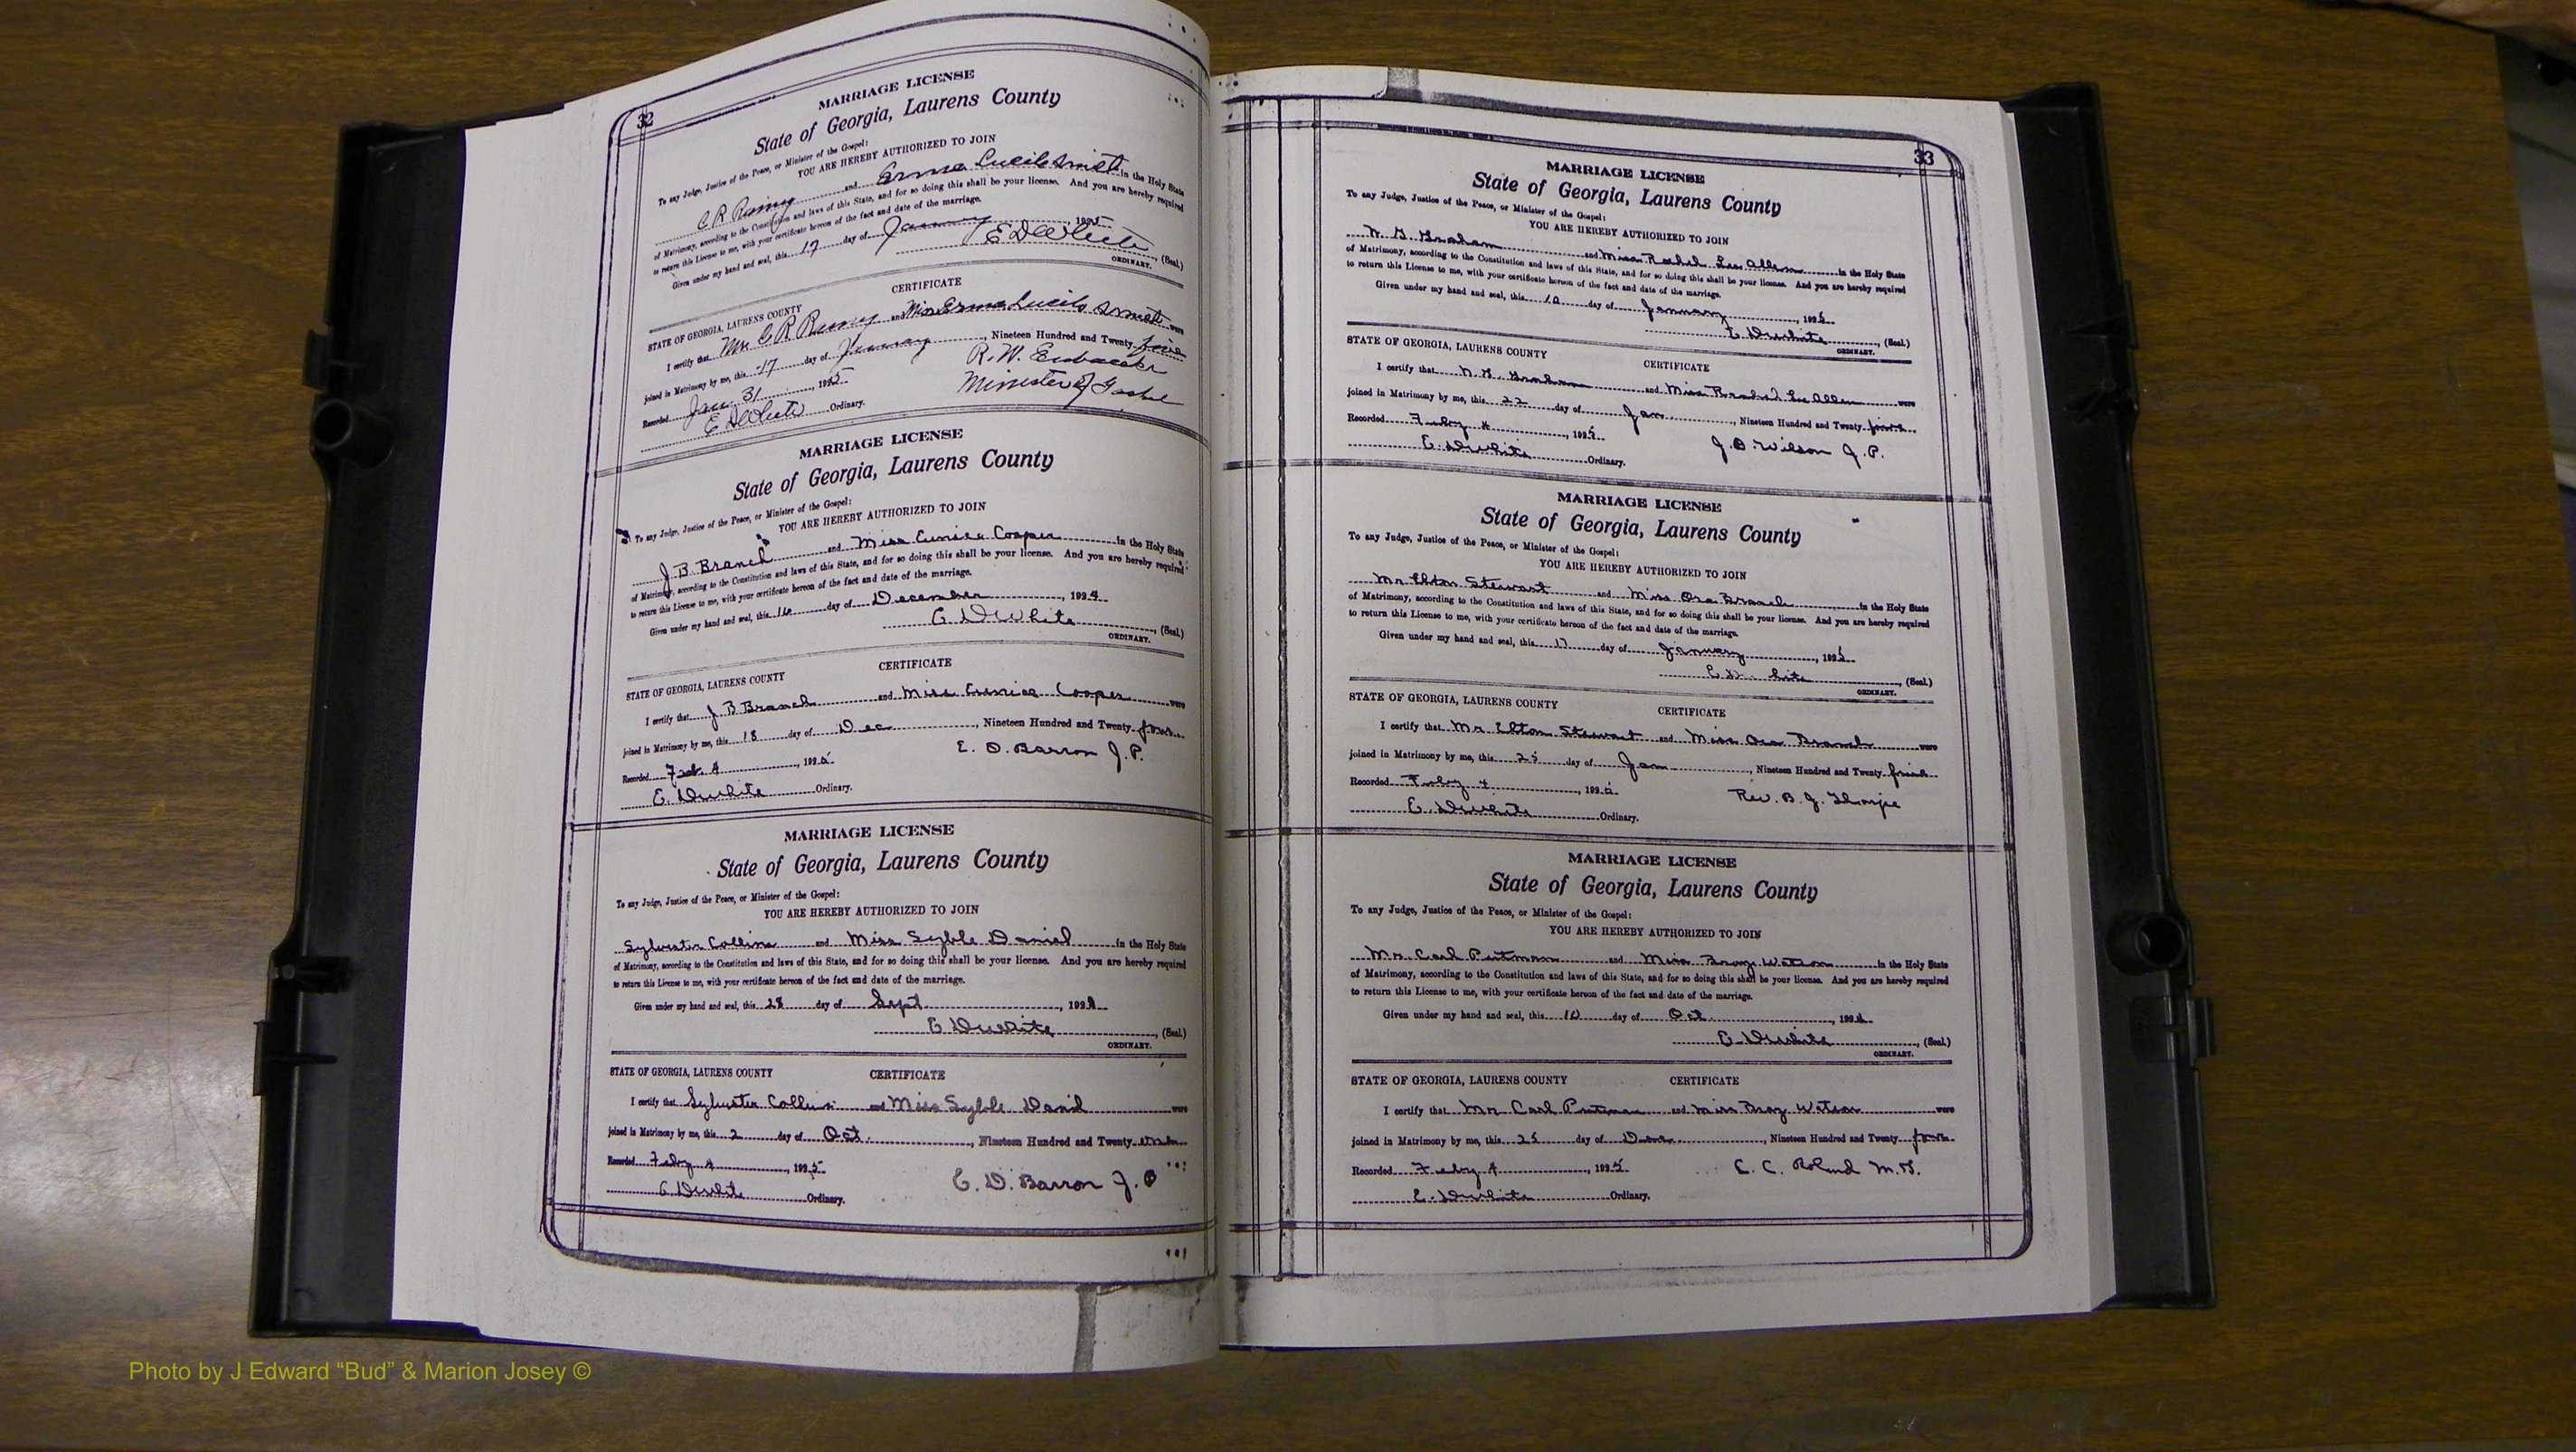 32
MARRIAGE LICENSE
State of Georgia, Laurens County
To any Judge, Justice of the Peace, or Minister of the Gospel:
YOU ARE HEREBY AUTHORIZED TO JOIN
C R and Erma Lucile Smith in the Holy State
of Matrimony, according to the Constitution and laws of this State, and for so doing this shall be your license. And you are hereby required
to return this License to me, with your certificate hereon of the fact and date of the marriage.
Given under my hand and seal, this 17 day of January, 1925
E D White, (Seal.)
ORDINARY.
CERTIFICATE
STATE OF GEORGIA, LAURENS COUNTY
I certify that Mr. C R and Miss Erma Lucile Smith were
joined in Matrimony by me, this 17 day of January, Nineteen Hundred and Twenty five
Recorded Jan. 31, 1925 R. W.
E D White Ordinary. Minister of Gospel
MARRIAGE LICENSE
State of Georgia, Laurens County
To any Judge, Justice of the Peace, or Minister of the Gospel:
YOU ARE HEREBY AUTHORIZED TO JOIN
J B. Branch and Miss Eunice Cooper in the Holy State
of Matrimony, according to the Constitution and laws of this State, and for so doing this shall be your license. And you are hereby required
to return this License to me, with your certificate hereon of the fact and date of the marriage.
Given under my hand and seal, this 16 day of December, 1924
E D White, (Seal.)
ORDINARY.
CERTIFICATE
STATE OF GEORGIA, LAURENS COUNTY
I certify that J B Branch and Miss Eunice Cooper were
joined in Matrimony by me, this 18 day of Dec, Nineteen Hundred and Twenty four
Recorded Feb. 4, 1925 E. D. Barron J. P.
E. D White Ordinary.
MARRIAGE LICENSE
State of Georgia, Laurens County
To any Judge, Justice of the Peace, or Minister of the Gospel:
YOU ARE HEREBY AUTHORIZED TO JOIN
Sylvester Collins and Miss Syble Daniel in the Holy State
of Matrimony, according to the Constitution and laws of this State, and for so doing this shall be your license. And you are hereby required
to return this License to me, with your certificate hereon of the fact and date of the marriage.
Given under my hand and seal, this 28 day of Sept.
E D White, (Seal.)
ORDINARY.
STATE OF GEORGIA, LAURENS COUNTY CERTIFICATE
I certify that Sylvester Collins and Miss Syble Daniel were
joined in Matrimony by me, this 2 day of Oct., Nineteen Hundred and Twenty
Recorded Feby 4, 1925 E. D. Barron J. P
E D White Ordinary.
33
MARRIAGE LICENSE
State of Georgia, Laurens County
To any Judge, Justice of the Peace, or Minister of the Gospel:
YOU ARE HEREBY AUTHORIZED TO JOIN
Graham and Miss Lee Allen in the Holy State
of Matrimony, according to the Constitution and laws of this State, and for so doing this shall be your license. And you are hereby required
to return this License to me, with your certificate hereon of the fact and date of the marriage.
Given under my hand and seal, this 10 day of January, 1925
E D White, (Seal.)
ORDINARY.
STATE OF GEORGIA, LAURENS COUNTY
CERTIFICATE
I certify that Graham and Miss Lee Allen were
joined in Matrimony by me, this 22 day of Jan., Nineteen Hundred and Twenty
Recorded Feby 4, 1925 J. B. Wilson J. P.
E. D White Ordinary.
MARRIAGE LICENSE
State of Georgia, Laurens County
To any Judge, Justice of the Peace, or Minister of the Gospel:
YOU ARE HEREBY AUTHORIZED TO JOIN
Mr Elton Stewart and Miss Ora Branch in the Holy State
of Matrimony, according to the Constitution and laws of this State, and for so doing this shall be your license. And you are hereby required
to return this License to me, with your certificate hereon of the fact and date of the marriage.
Given under my hand and seal, this 17 day of January, 1925
E D hite, (Seal.)
ORDINARY.
STATE OF GEORGIA, LAURENS COUNTY
CERTIFICATE
I certify that Mr Elton Stewart and Miss Ora Branch were
joined in Matrimony by me, this 25 day of Jan, Nineteen Hundred and Twenty
Recorded Feby 4, 1925 Rev. B. J. Thorpe
E. D White Ordinary.
MARRIAGE LICENSE
State of Georgia, Laurens County
To any Judge, Justice of the Peace, or Minister of the Gospel:
YOU ARE HEREBY AUTHORIZED TO JOIN
Mr. Carl Putman and Miss Watson in the Holy State
of Matrimony, according to the Constitution and laws of this State, and for so doing this shall be your license. And you are hereby required
to return this License to me, with your certificate hereon of the fact and date of the marriage.
Given under my hand and seal, this 10 day of Oct., 1924
E D White, (Seal.)
ORDINARY.
STATE OF GEORGIA, LAURENS COUNTY CERTIFICATE
I certify that Mr Carl Putman and Miss Watson were
joined in Matrimony by me, this 25 day of, Nineteen Hundred and Twenty four
Recorded Feby 4, 1925 E. C. Roland M. G.
E. D White Ordinary.
Photo by J Edward “Bud” & Marion Josey ©